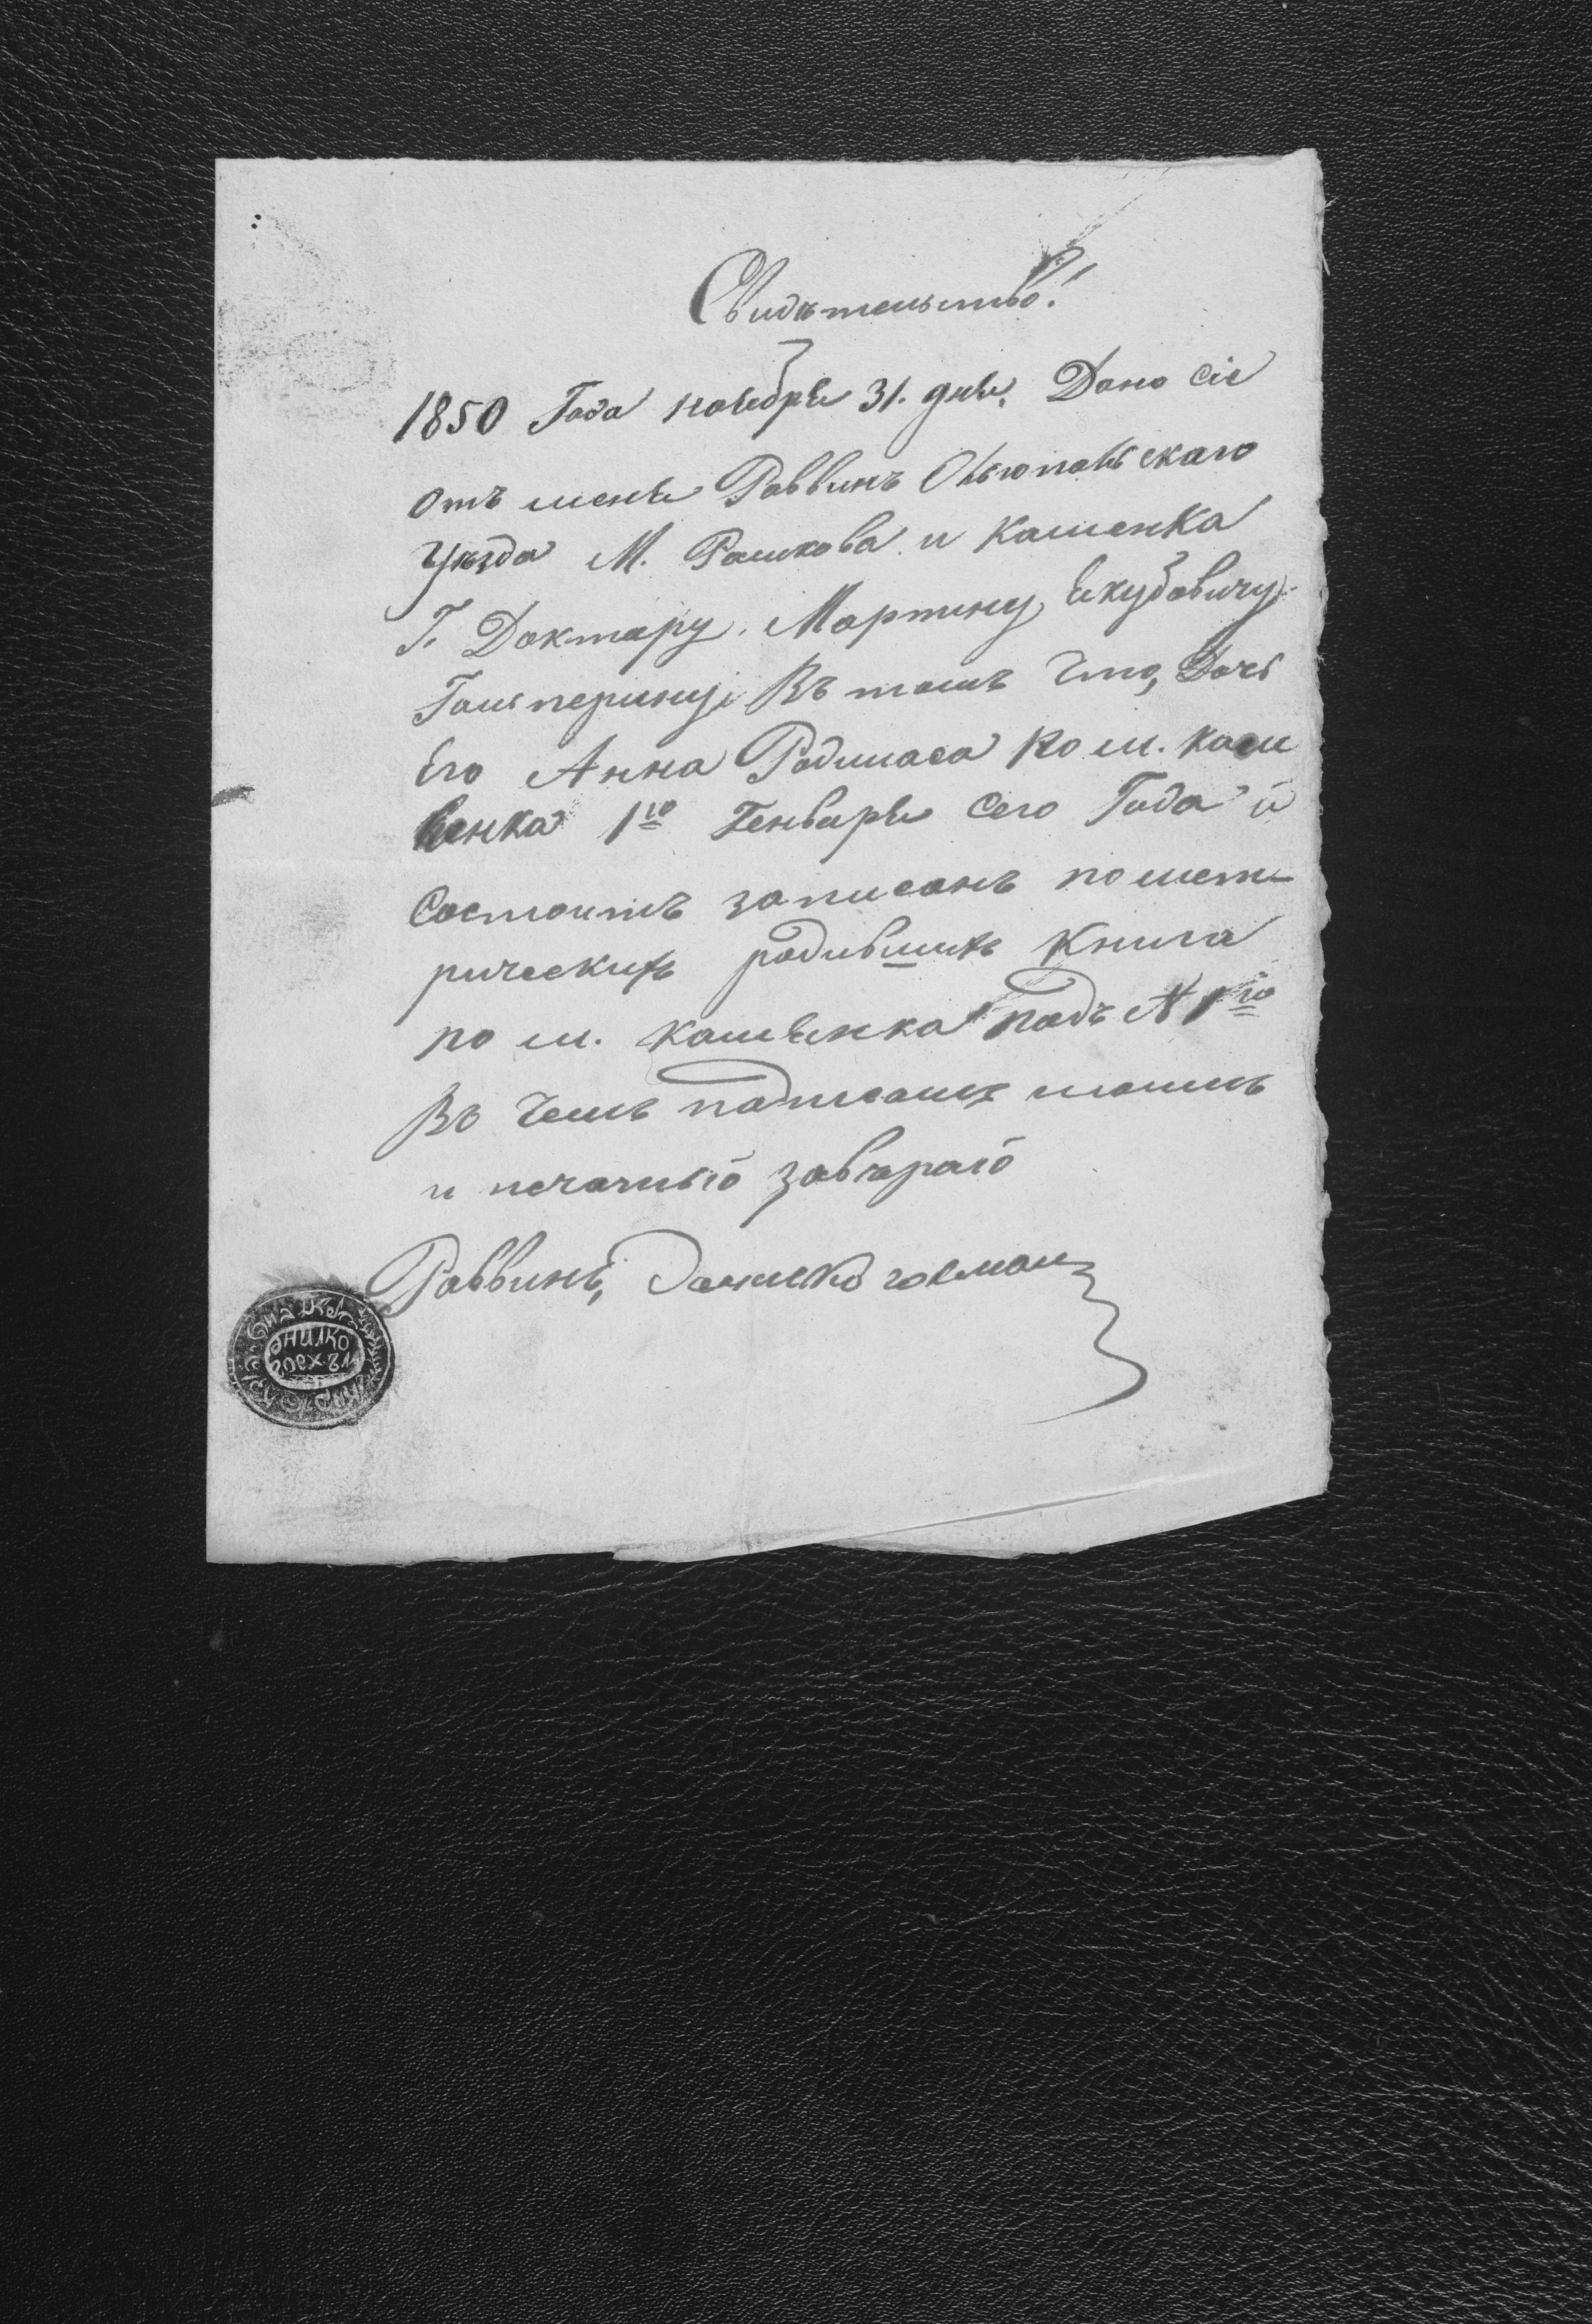 Свидѣтельство!
1850 Года ноября 31. дня, Дано сіе
отъ меня Раввинъ Ольгопольскаго
Уѣзда М. Рашкова и Каменка
Г. Доктару Мартину Якубовичу
Гальперину Въ томъ Что, Дочь
Его Анна Родиласа по м. Кам
янка 1го Генваря Сего Года и
Состоитъ записанъ по мет-
рическихъ родившихъ Книга
по м. Камянка подъ N 1го
Въ Чемъ
и печатьіо завѣраіо
Раввинъ,